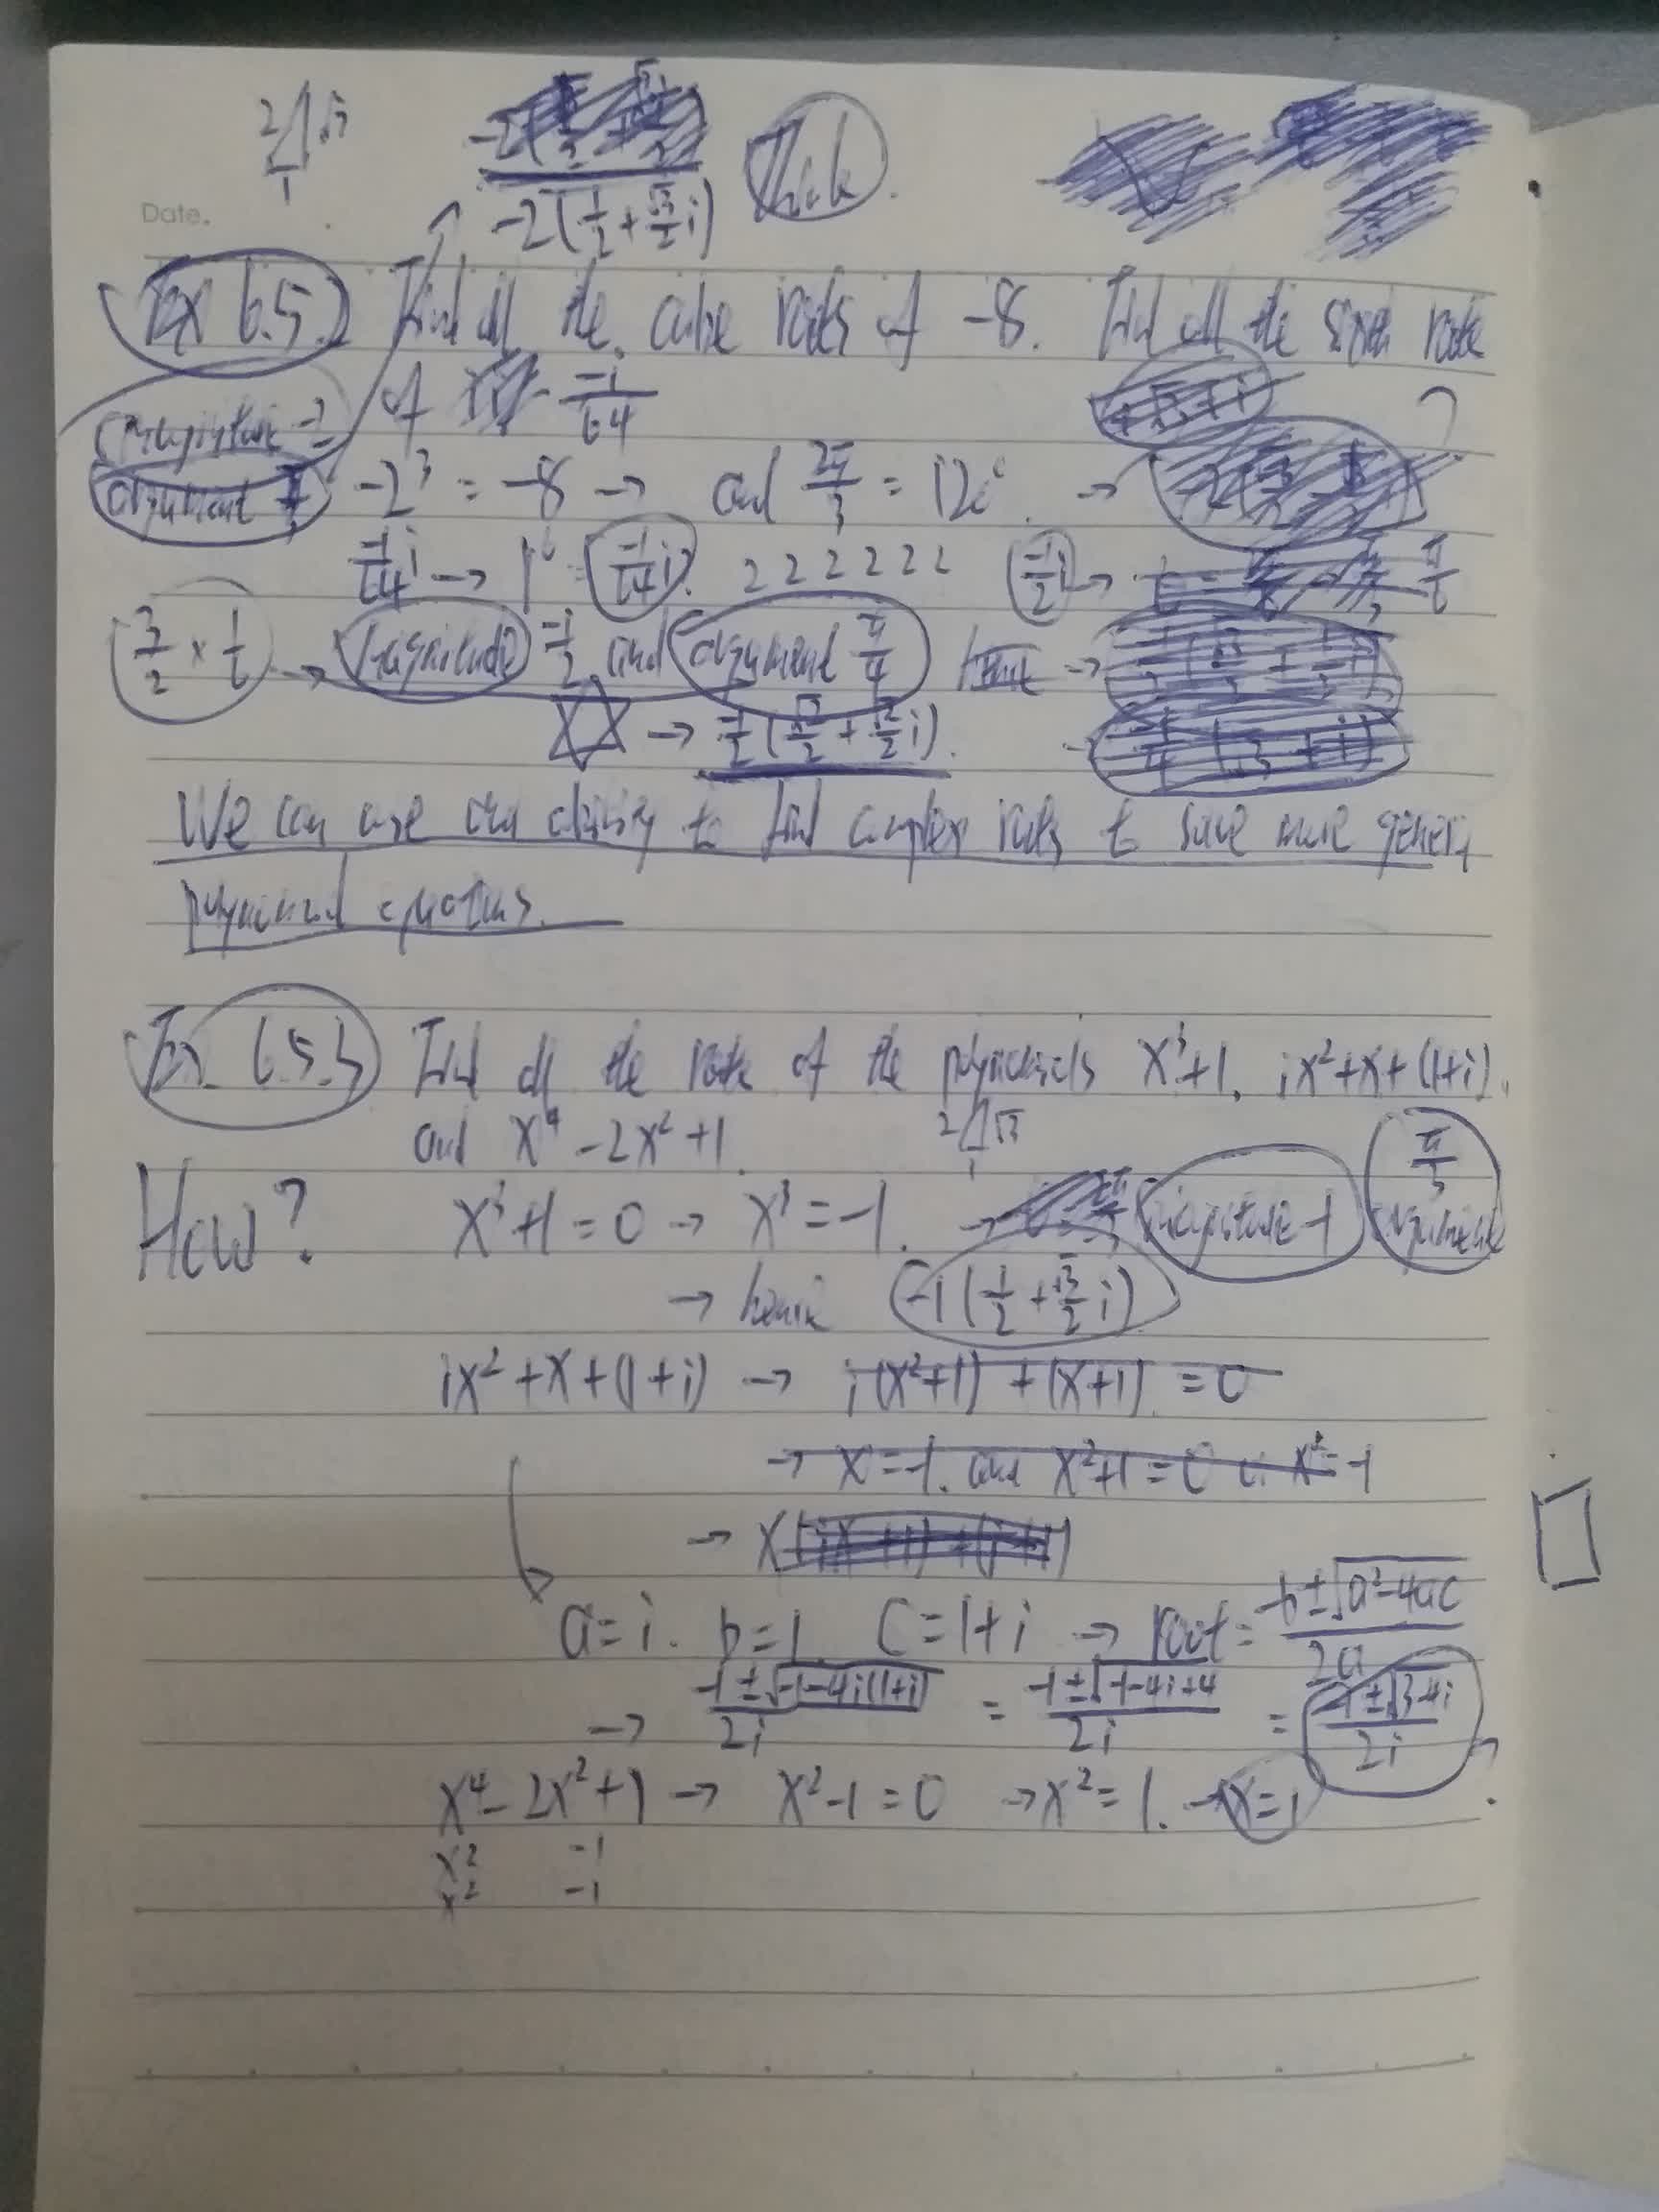 2 √3
1
-2(1/2 + √3/2 i) Think.
Date.
Ex 6.5. Find all the cube roots of -8. Find all the sixth roots
of -i/64
magnitude 2
argument
-2³ = -8 → and 2π/3 = 120° →
-1/64 i → 1⁶ = -1/64 i. 2 2 2 2 2 2 -1/2 i → π/6
3/2 × 1/6 → Magnitude -1/2 and argument π/4
→ -1/2 (√2/2 + √2/2 i).
We can use our ability to find complex roots to solve more general
polynomial equations.
Ex 6.5.3 Find all the roots of the polynomials x³+1, ix²+x+(1+i).
and x⁴ - 2x² + 1. 2 √3
1
How? x³+1 = 0 → x³ = -1. → magnitude -1 π/3 argument
→ hence -1(1/2 + √3/2 i)
ix² + x + (1+i) → i(x²+1) + (x+1) = 0
→ x = -1. and x²+1 = 0 x² = -1
→ x
a = i. b = 1 c = 1+i → root = -b±√a²-4ac / 2a
→ -1±√-1-4i(1+i) / 2i = -1±√-1-4i+4 / 2i = -1±√3-4i / 2i ?
x⁴ - 2x² + 1 → x²-1 = 0 → x² = 1. → x = 1
x² -1
x² -1